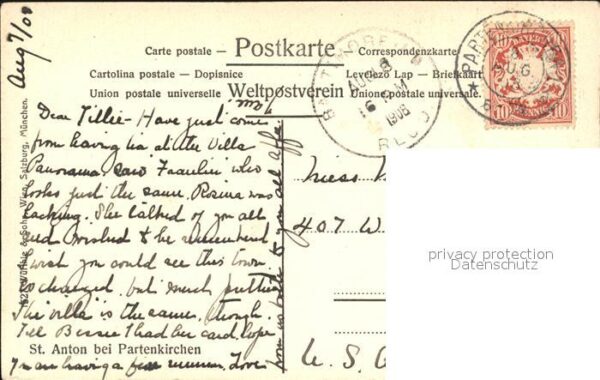 Aug 7/08
Carte postale – Postkarte – Correspondenzkarte
Cartolina postale – Dopisnice Levelező Lap – Briefkaart
Union postale universelle Weltpostverein Union postale universelle.
BAYERN
10 PFENNIG 10
PARTENKIRCHEN
AUG
BALTIMORE
AUG
PM
1908
REC'D
Dear Tillie – Have just come
from having tea at the Villa
Panorama. Saw Fraulein who
looks just the same. Rosina was
lacking. She talked of you all
and wished to be remembered
I wish you could see this town
so changed, but much prettier
The villa is the same, though.
Tell Bessie I had her card, hope
you are having a fine summer. Love
from us both to you all
Miss
407 W.
U. S.
St. Anton bei Partenkirchen
Würthle & Sohn, Wien, Salzburg, München.
privacy protection
Datenschutz